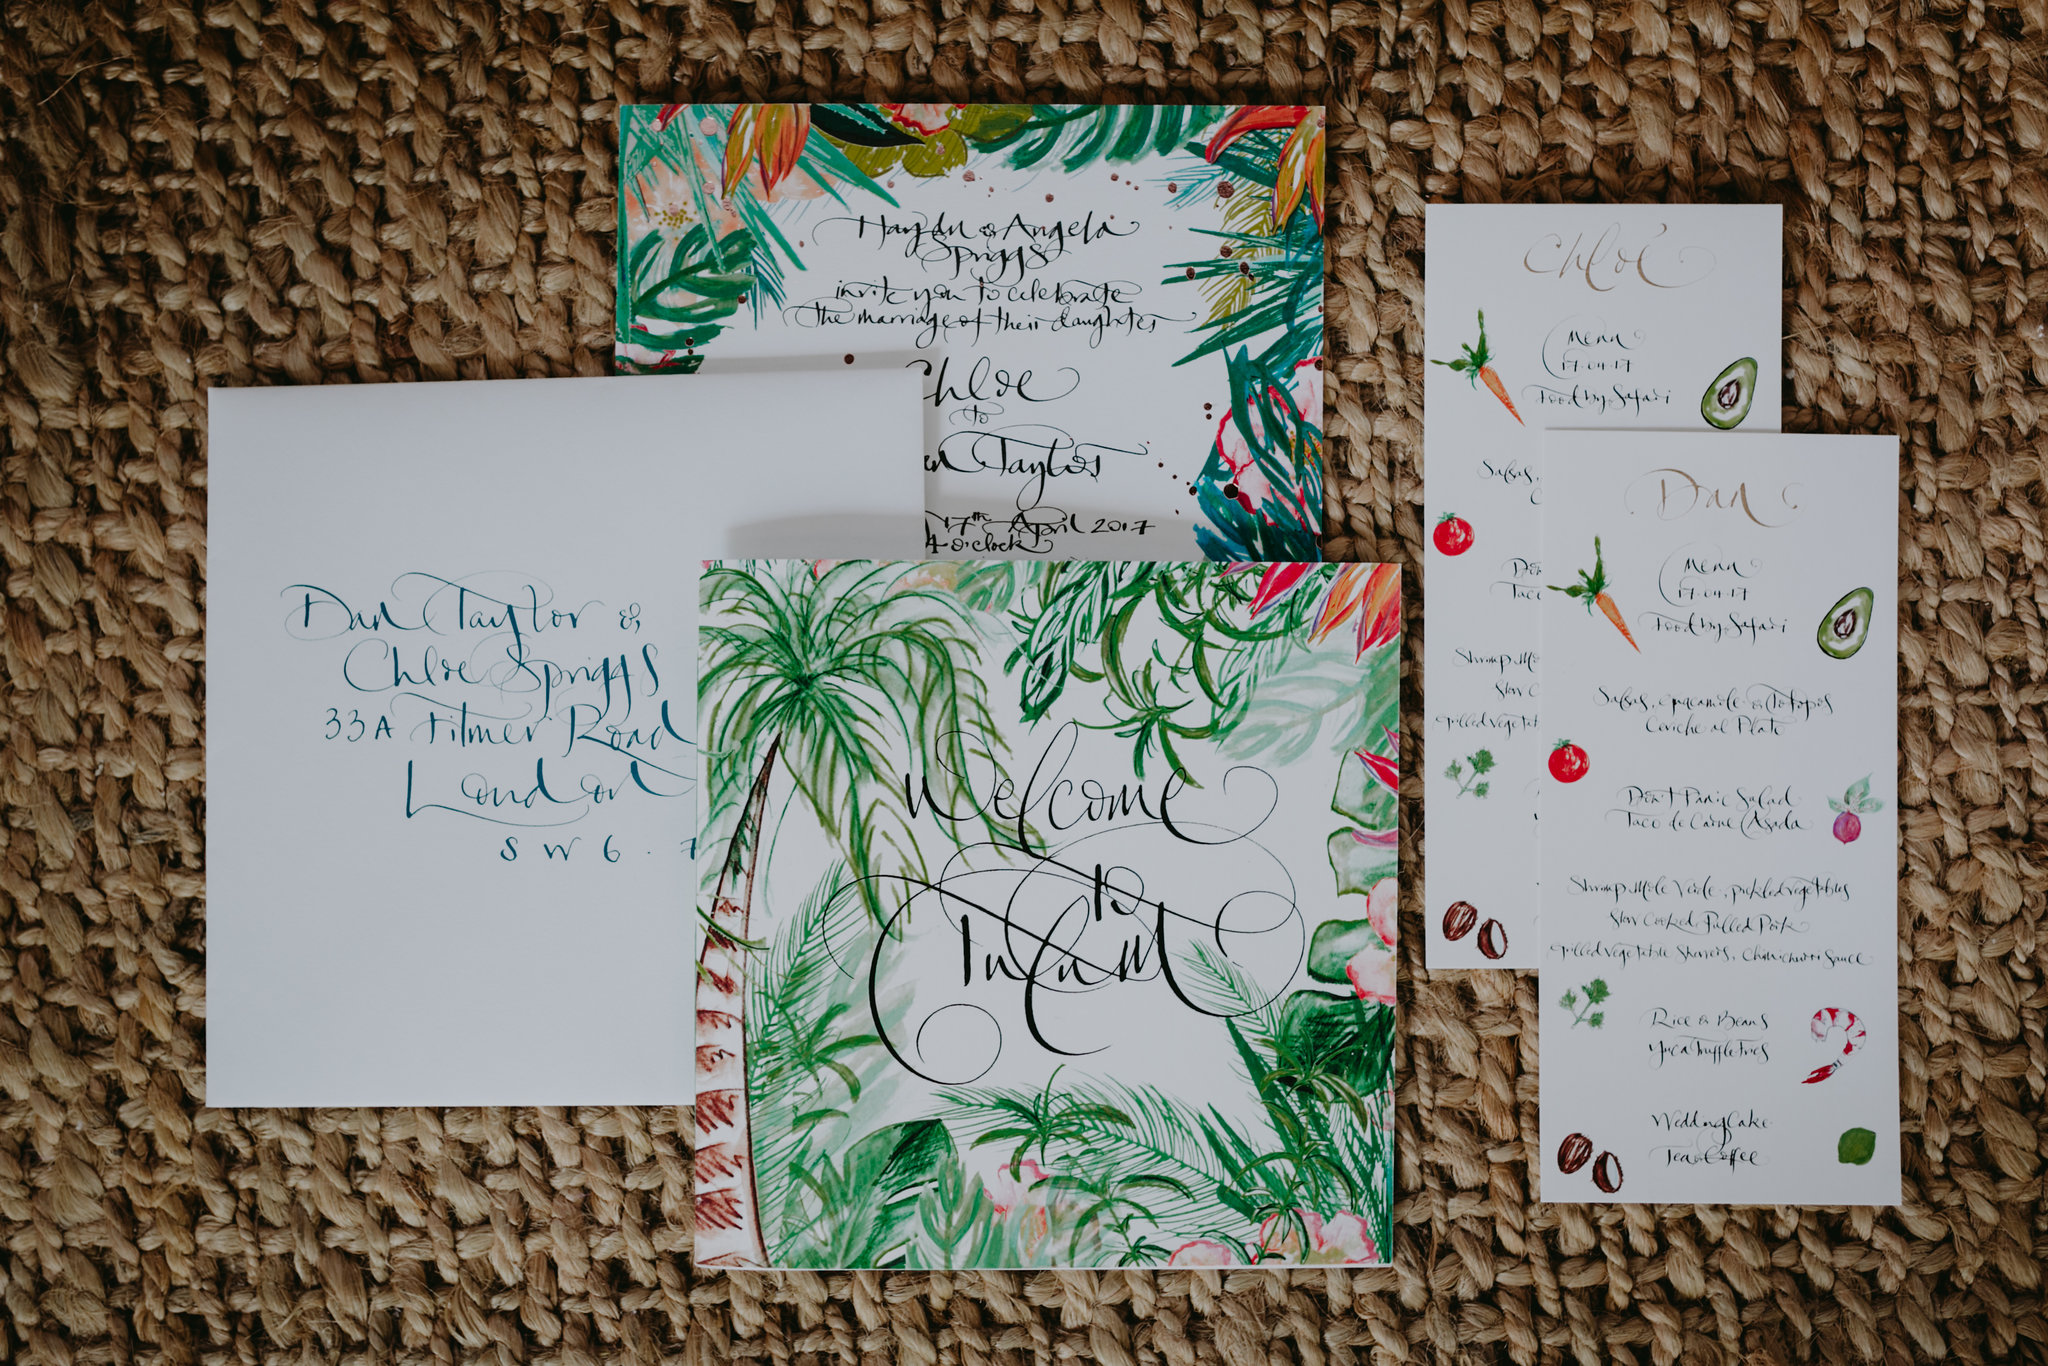 Hayden & Angela
Spriggs
invite you to celebrate
the marriage of their daughter
Chloe
to
Taylor
17th April 2017
4 o'clock
Dan Taylor &
Chloe Spriggs
33A Filmer Road
London
SW6. 7
Welcome
to
Tulum
Chloe
Menu
17.04.17
Food by Safari
Salsas,
Don't
Taco
Shrimp Mole
Slow C
Grilled Vegetable
Dan
Menu
17.04.17
Food by Safari
Salsas, Guacamole & Totopos
Ceviche al Plato
Don't Panic Salad
Taco de Carne Asada
Shrimp Mole Verde, pickled vegetables
Slow Cooked Pulled Pork
Grilled Vegetable Skewers, Chimichurri Sauce
Rice & Beans
Yuca Truffle Fries
Wedding Cake
Tea & Coffee